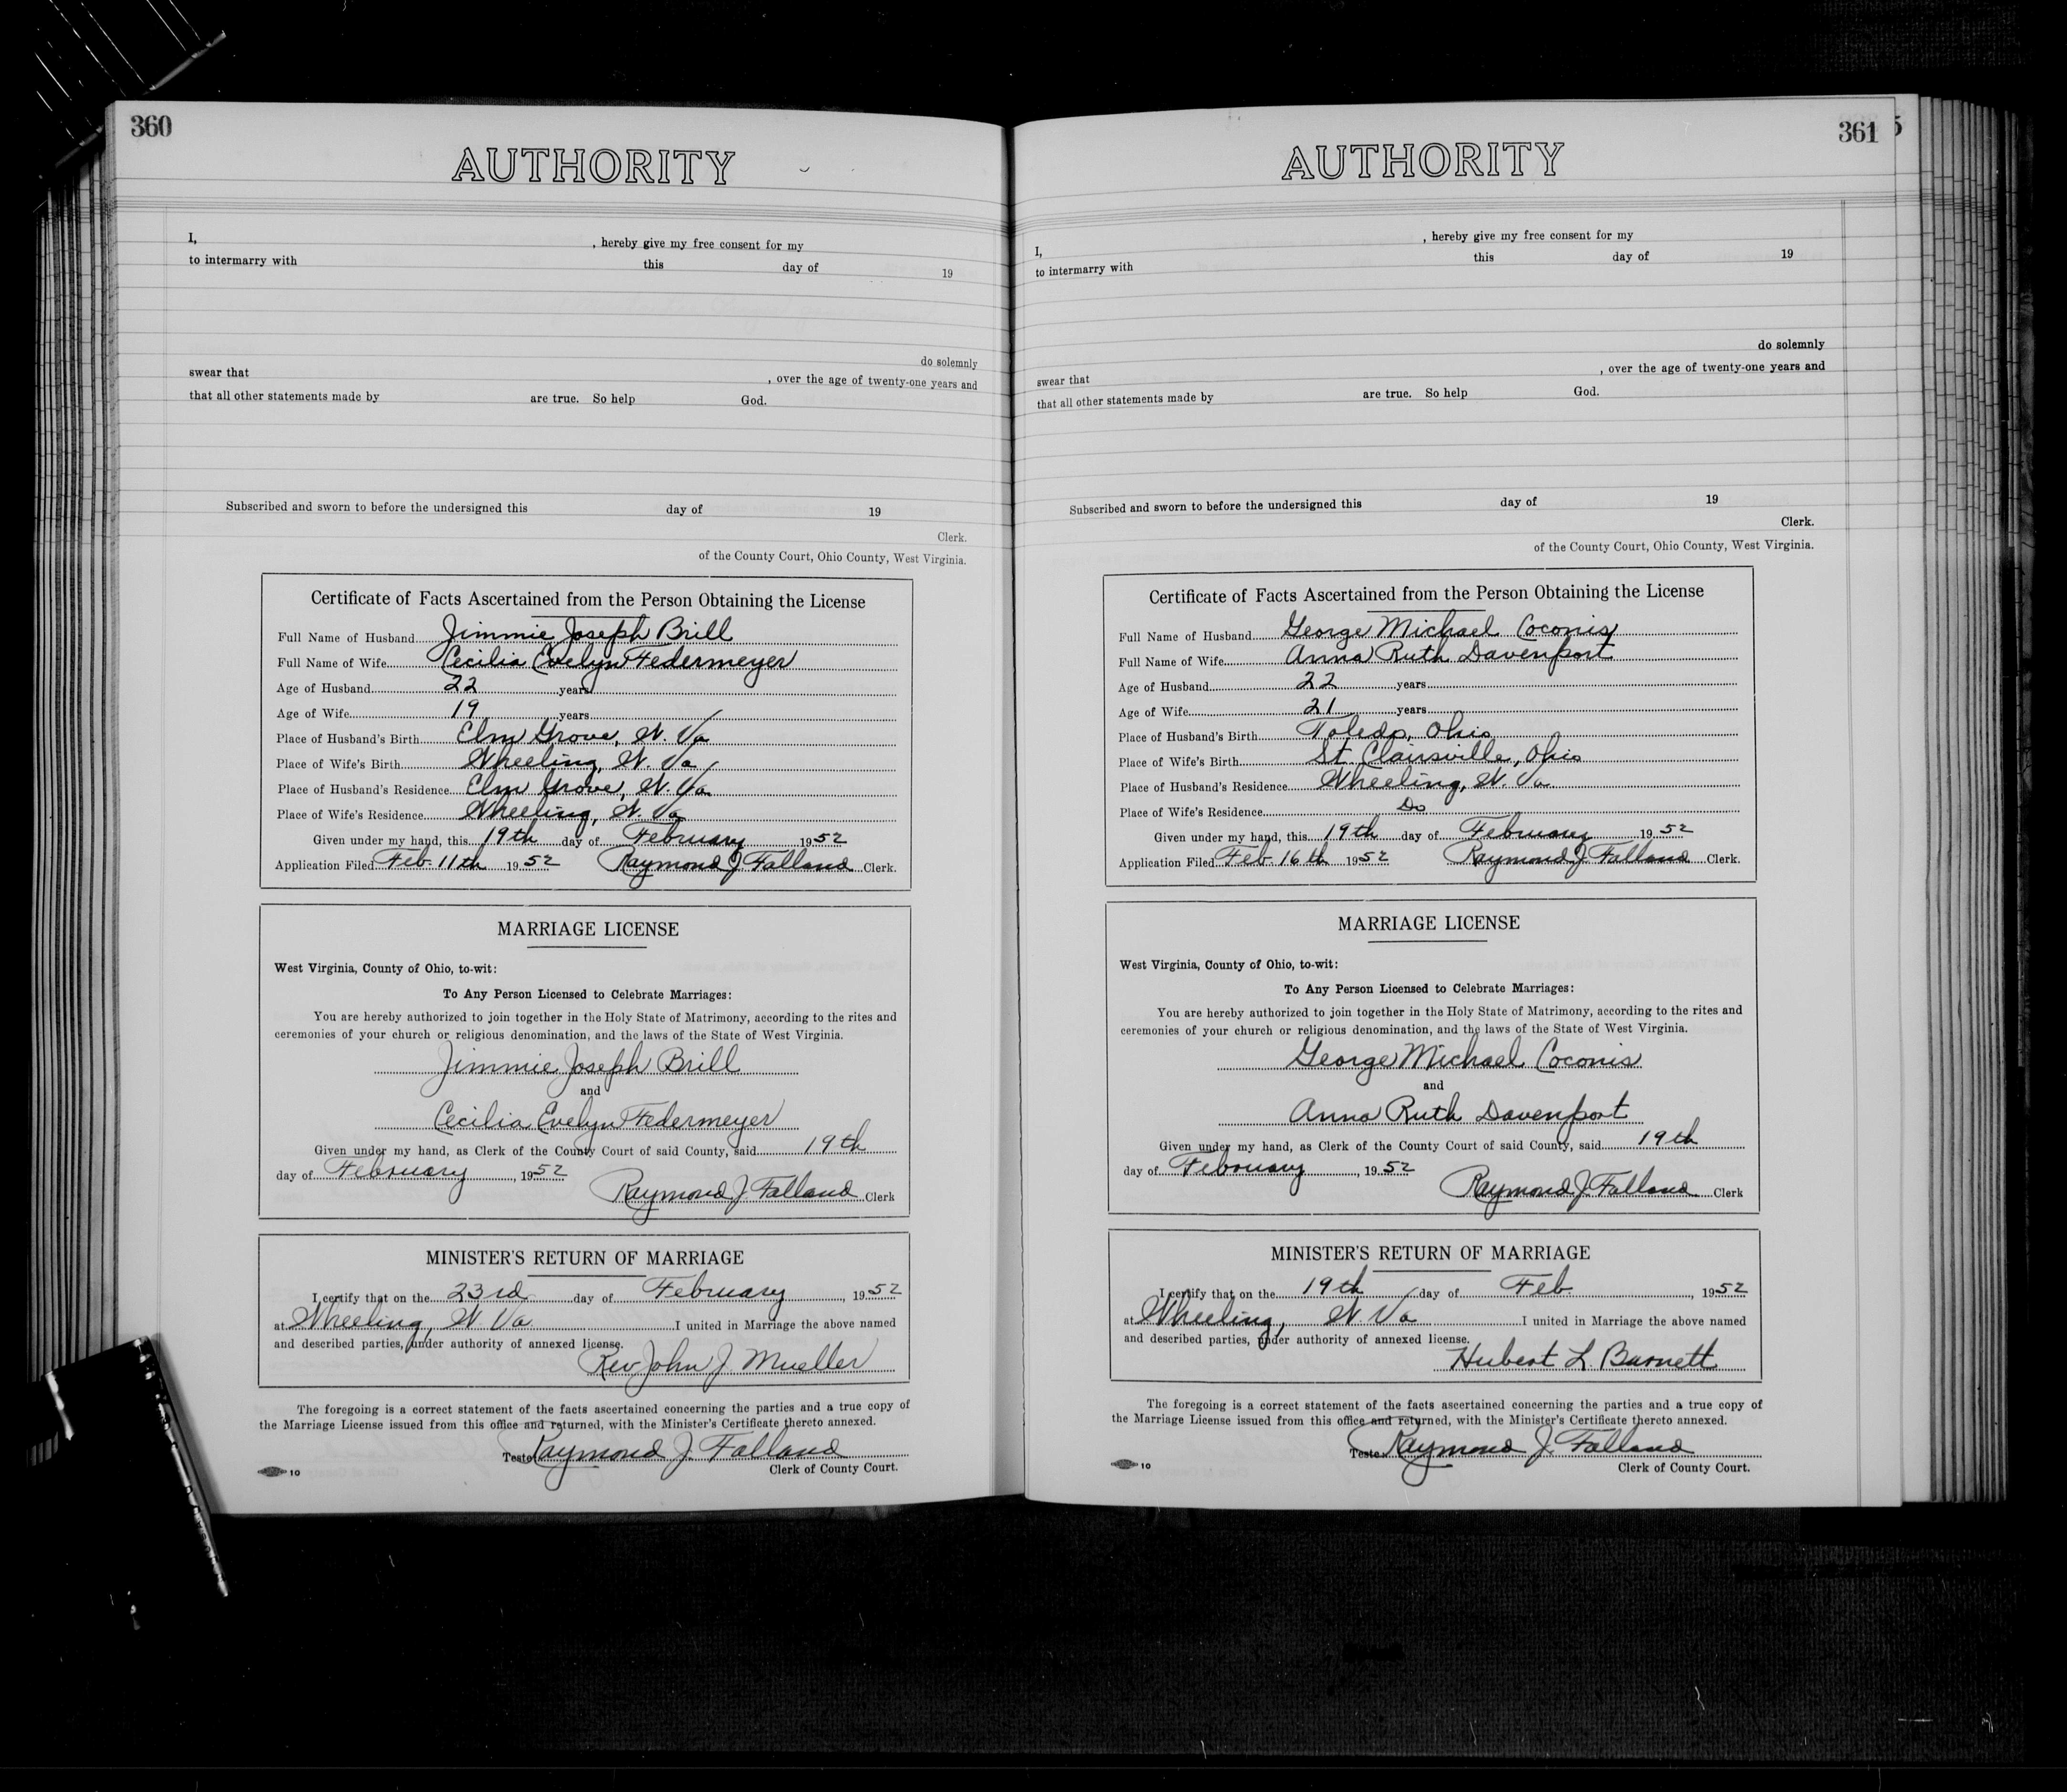 360
AUTHORITY
I, , hereby give my free consent for my
to intermarry with this day of 19
do solemnly
swear that , over the age of twenty-one years and
that all other statements made by are true. So help God.
Subscribed and sworn to before the undersigned this day of 19
Clerk.
of the County Court, Ohio County, West Virginia.
Certificate of Facts Ascertained from the Person Obtaining the License
Full Name of Husband Jimmie Joseph Brill
Full Name of Wife Cecilia Evelyn Federmeyer
Age of Husband 22 years
Age of Wife 19 years
Place of Husband's Birth Elm Grove, W. Va
Place of Wife's Birth Wheeling, W. Va
Place of Husband's Residence Elm Grove, W. Va.
Place of Wife's Residence Wheeling, W. Va
Given under my hand, this 19th day of February 1952
Application Filed Feb. 11th 1952 Raymond J. Falland Clerk.
MARRIAGE LICENSE
West Virginia, County of Ohio, to-wit:
To Any Person Licensed to Celebrate Marriages:
You are hereby authorized to join together in the Holy State of Matrimony, according to the rites and
ceremonies of your church or religious denomination, and the laws of the State of West Virginia.
Jimmie Joseph Brill
and
Cecilia Evelyn Federmeyer
Given under my hand, as Clerk of the County Court of said County, said 19th
day of February, 1952
Raymond J. Falland Clerk
MINISTER'S RETURN OF MARRIAGE
I certify that on the 23rd day of February, 1952
at Wheeling, W. Va. I united in Marriage the above named
and described parties, under authority of annexed license.
Rev John J. Mueller
The foregoing is a correct statement of the facts ascertained concerning the parties and a true copy of
the Marriage License issued from this office and returned, with the Minister's Certificate thereto annexed.
Teste Raymond J. Falland
10 Clerk of County Court.
361 5
AUTHORITY
I, , hereby give my free consent for my
to intermarry with this day of 19
do solemnly
swear that , over the age of twenty-one years and
that all other statements made by are true. So help God.
Subscribed and sworn to before the undersigned this day of 19
Clerk.
of the County Court, Ohio County, West Virginia.
Certificate of Facts Ascertained from the Person Obtaining the License
Full Name of Husband George Michael Coconis
Full Name of Wife Anna Ruth Davenport
Age of Husband 22 years
Age of Wife 21 years
Place of Husband's Birth Toledo, Ohio
Place of Wife's Birth St. Clairsville, Ohio
Place of Husband's Residence Wheeling, W. Va
Place of Wife's Residence Do
Given under my hand, this 19th day of February 1952
Application Filed Feb 16th 1952 Raymond J. Falland Clerk.
MARRIAGE LICENSE
West Virginia, County of Ohio, to-wit:
To Any Person Licensed to Celebrate Marriages:
You are hereby authorized to join together in the Holy State of Matrimony, according to the rites and
ceremonies of your church or religious denomination, and the laws of the State of West Virginia.
George Michael Coconis
and
Anna Ruth Davenport
Given under my hand, as Clerk of the County Court of said County, said 19th
day of February, 1952
Raymond J. Falland Clerk
MINISTER'S RETURN OF MARRIAGE
I certify that on the 19th day of Feb, 1952
at Wheeling, W. Va I united in Marriage the above named
and described parties, under authority of annexed license.
Hubert L. Barnett
The foregoing is a correct statement of the facts ascertained concerning the parties and a true copy of
the Marriage License issued from this office and returned, with the Minister's Certificate thereto annexed.
Teste Raymond J. Falland
10 Clerk of County Court.